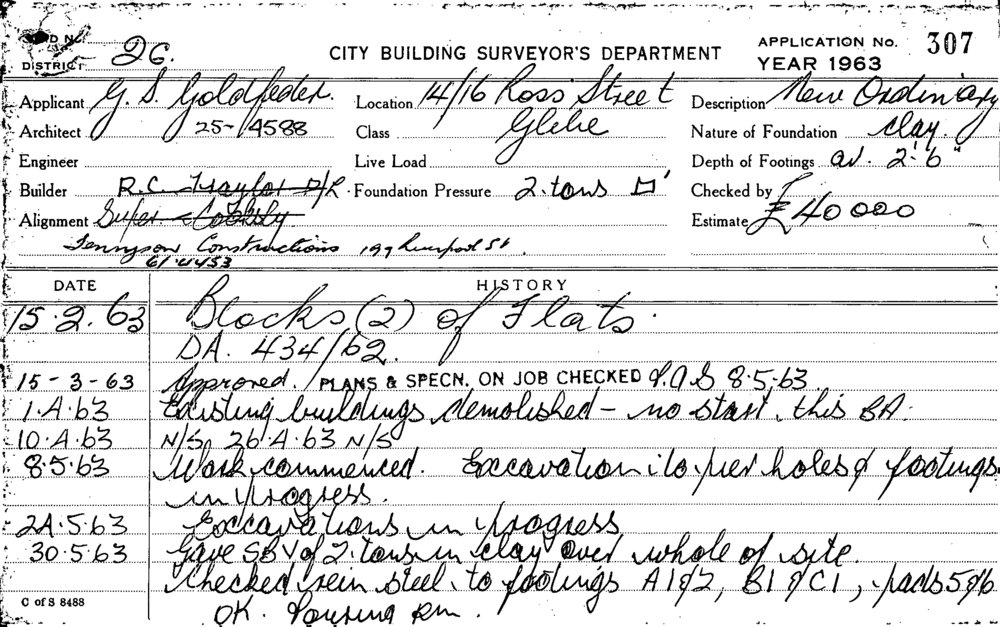 DISTRICT 26. CITY BUILDING SURVEYOR'S DEPARTMENT APPLICATION No. 307
YEAR 1963
Applicant G. S. Goldfeder. Location 14/16 Ross Street Description New Ordinary
Architect 25-4588 Class Glebe Nature of Foundation clay.
Engineer Live Load Depth of Footings av. 2'-6"
Builder R.C. Traylor P/R Foundation Pressure 2.tons □' Checked by
Alignment Super Estimate £40000
Tennyson Constructions 199 Liverpool St.
61.4453
DATE HISTORY
15.2.63 Blocks (2) of Flats.
DA. 434/62.
15-3-63 Approved. PLANS & SPECN. ON JOB CHECKED 8.5.63
1.4.63 Existing buildings demolished – no start this BA.
10.4.63 N/S. 26.4.63 N/S
8.5.63 Work commenced. Excavation i to pier holes & footings
in progress.
24.5.63 Excavations in progress
30.5.63 Gave SBV of 2.tons in clay over whole of site.
Checked rein steel to footings A1&2, B1 & C1, pads 5&6
OK. Pouring pm.
C of S 8488